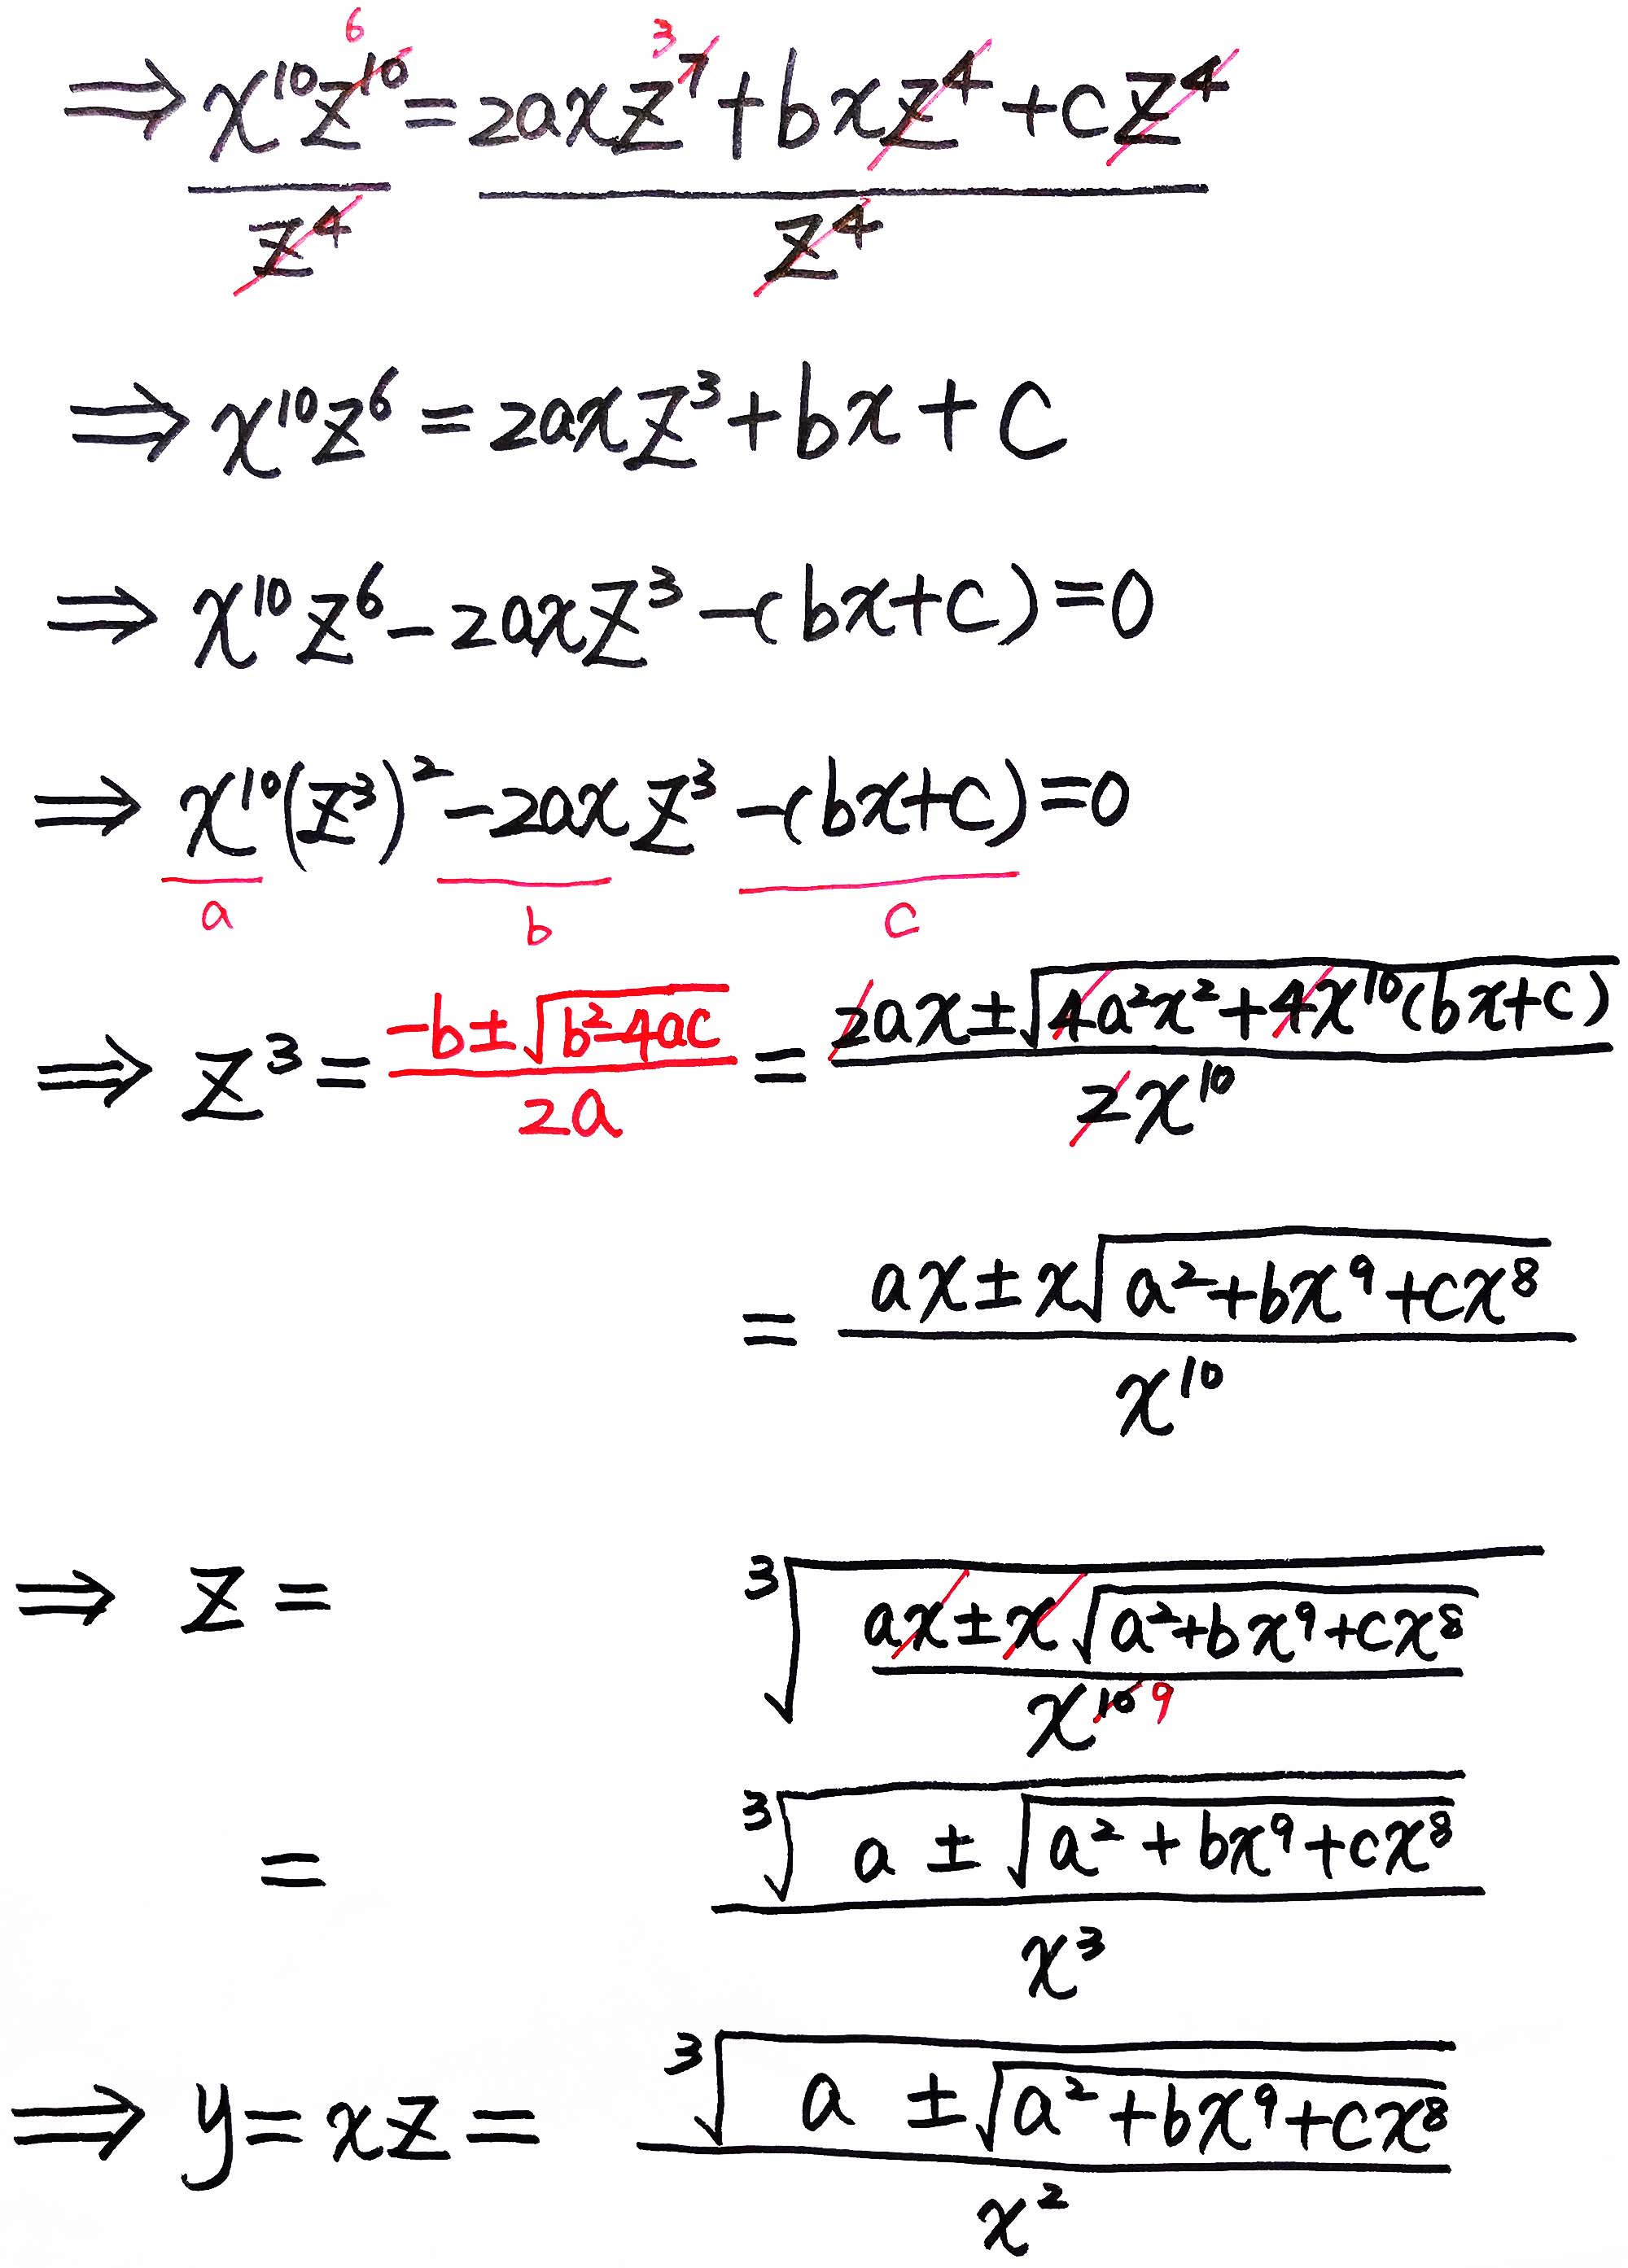 ⇒ x¹⁰z¹⁰/z⁴ = (2axz⁷ + bxz⁴ + cz⁴)/z⁴
6 3
⇒ x¹⁰z⁶ = 2axz³ + bx + c
⇒ x¹⁰z⁶ - 2axz³ - (bx+c) = 0
⇒ x¹⁰(z³)² - 2axz³ - (bx+c) = 0
a b c
⇒ z³ = (-b ± √(b²-4ac))/(2a) = (2ax ± √(4a²x² + 4x¹⁰(bx+c)))/(2x¹⁰)
= (ax ± x√(a² + bx⁹ + cx⁸))/x¹⁰
⇒ z = ∛((ax ± x√(a² + bx⁹ + cx⁸))/x¹⁰) 9
= ∛(a ± √(a² + bx⁹ + cx⁸))/x³
⇒ y = xz = ∛(a ± √(a² + bx⁹ + cx⁸))/x²